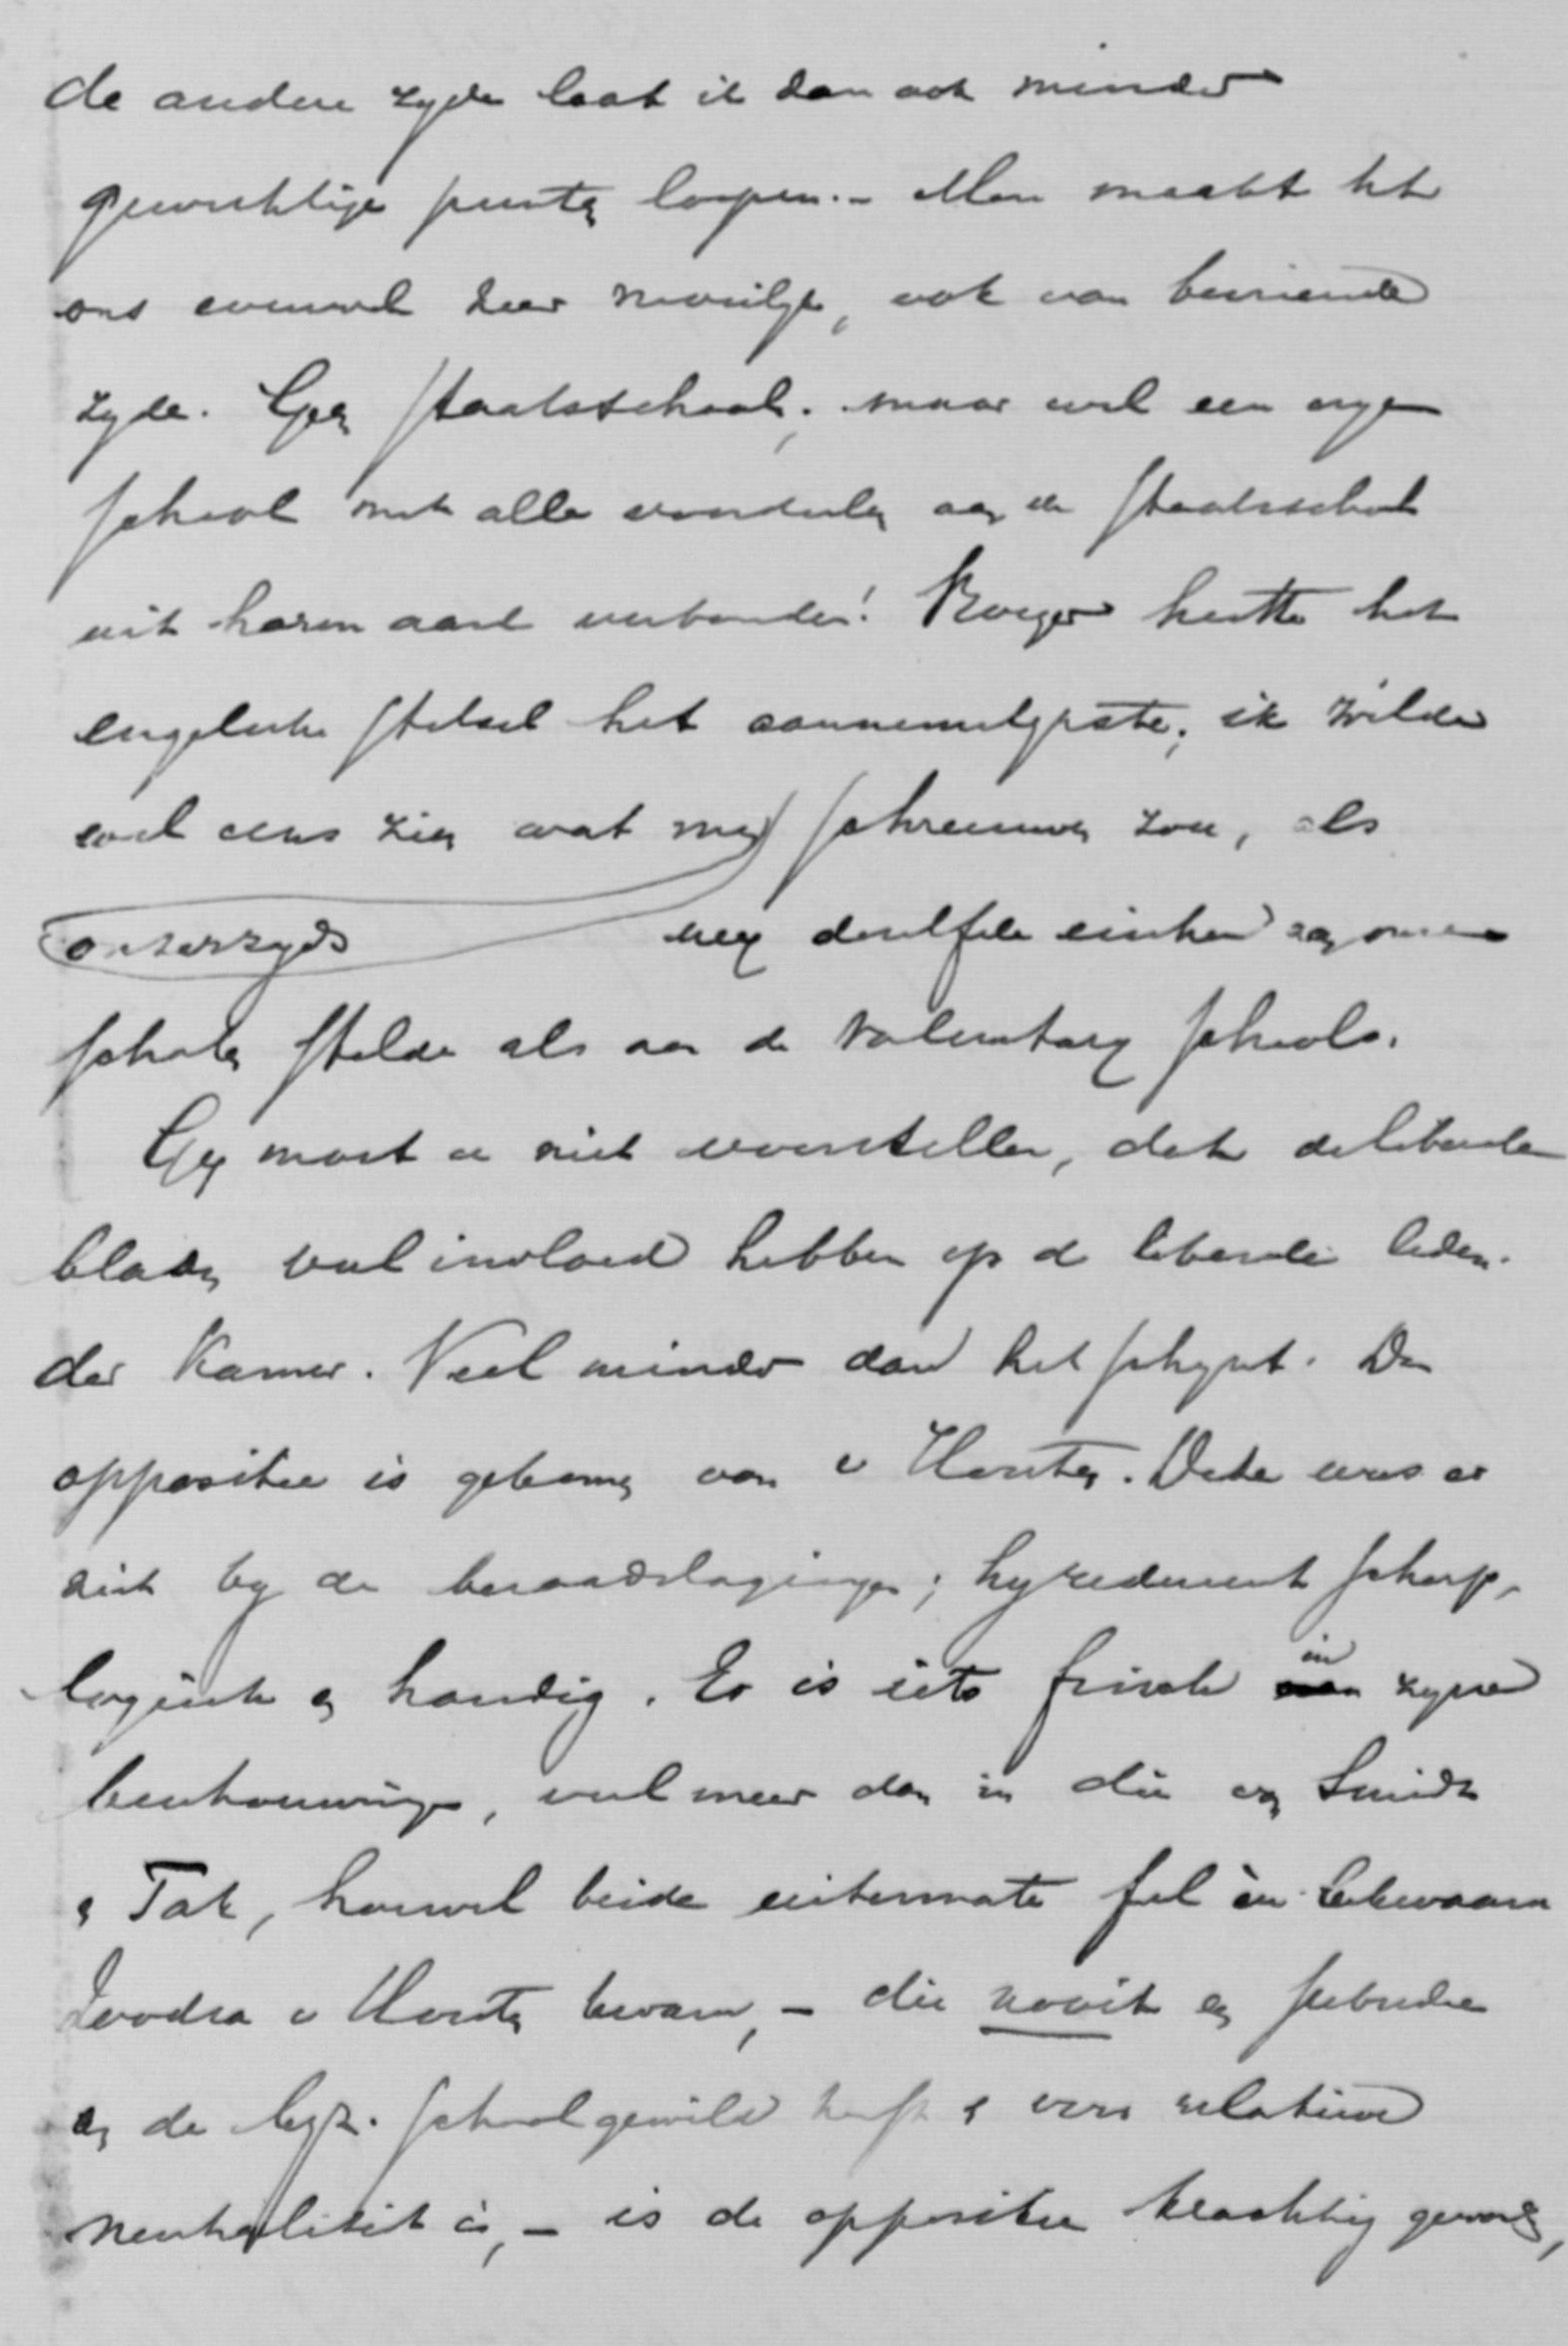 de andere zyde laat ik dan ook minder
gewichtige punten loopen. – Men maakt het
ons evenwel zeer moeilyk, ook van bevriende
zyde. Geen staatsschool; maar wel een eigen
school met alle voordeelen aan de staatsschool
uit haren aard verbonden! Kuyper heette het
engelsche stelsel het aannemelykste; ik wilde
wel eens zien wat men schreeuwen zou, als
onzerzyds men dezelfde eischen aan onze
scholen stelde als aan de voluntary schools.
Gy moet u niet voorstellen, dat de liberale
bladen veel invloed hebben op de liberale leden
der Kamer. Veel minder dan het schynt. De
oppositie is gekomen van v Houten. Deze was er
niet by de beraadslagingen; hy redeneert scherp,
logisch en handig. Er is iets frisch in zyne
beschouwingen, veel meer dan in die van Smidt
en Tak, hoewel beide uitermate fel èn bekwaam
Zoodra v Houten kwam, – die nooit een
van de byz. school gewild heeft & voor relatieve
neutraliteit is, – is de oppositie krachtig geword,